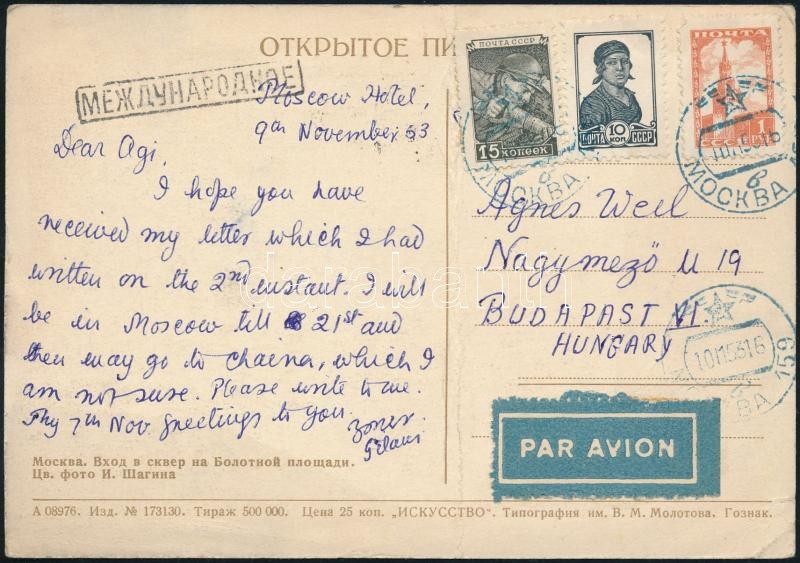 ОТКРЫТОЕ ПИ
МЕЖДУНАРОДНОЕ
Moscow Hotel,
9th November 53
Dear Agi,
I hope you have
received my letter which I had
written on the 2nd instant. I will
be in Moscow till 21st and
then may go to Chaina, which I
am not sure. Please write to me.
My 7th Nov. greetings to you.
Москва. Вход в сквер на Болотной площади.
Цв. фото И. Шагина
А 08976. Изд. № 173130. Тираж 500 000. Цена 25 коп. „ИСКУССТВО". Типография им. В. М. Молотова. Гознак.
ПОЧТА СССР
15 КОПЕЕК
ПОЧТА 10 КОП СССР
ПОЧТА
СССР 1 РУБ
МОСКВА
МОСКВА
Agnes Weil
Nagymező U 19
BUDAPAST VI.
HUNGARY
PAR AVION
darabanth